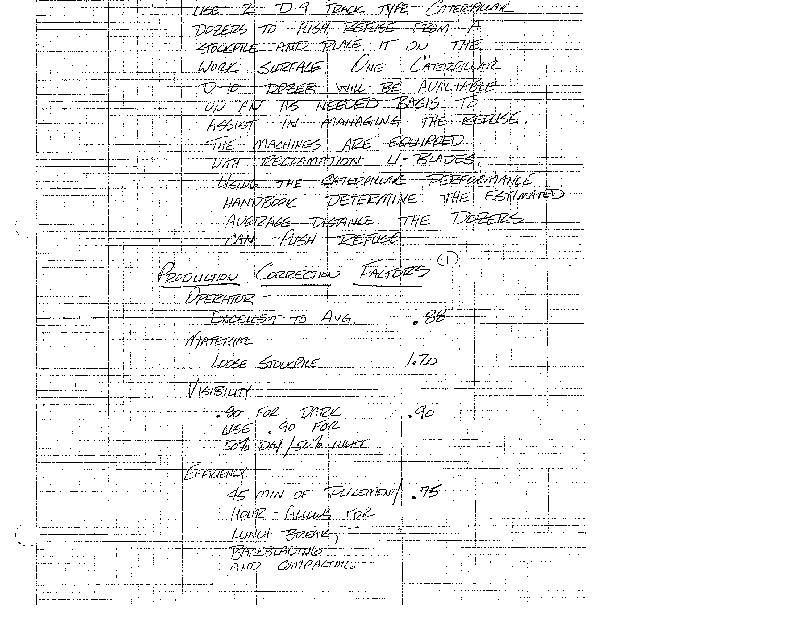 USE 2 D-9 TRACK TYPE CATERPILLAR
DOZERS TO PUSH REFUSE FROM A
STOCKPILE AND PLACE IT ON THE
WORK SURFACE. ONE CATERPILLAR
D-10 DOZER WILL BE AVAILABLE
ON AN AS NEEDED BASIS TO
ASSIST IN MANAGING THE REFUSE.
THE MACHINES ARE EQUIPPED
WITH RECLAMATION U-BLADES.
USING THE CATERPILLAR PERFORMANCE
HANDBOOK DETERMINE THE ESTIMATED
AVERAGE DISTANCE THE DOZERS
CAN PUSH REFUSE
PRODUCTION CORRECTION FACTORS (1)
OPERATOR
EXCELLENT TO AVG. .88
MATERIAL
LOOSE STOCKPILE 1.20
VISIBILITY
.80 FOR DARK .90
USE .90 FOR
50% DAY/50% NIGHT
EFFICIENCY
45 MIN OF / .75
HOUR - ALLOWS FOR
LUNCH BREAK,
AND COMPACTING